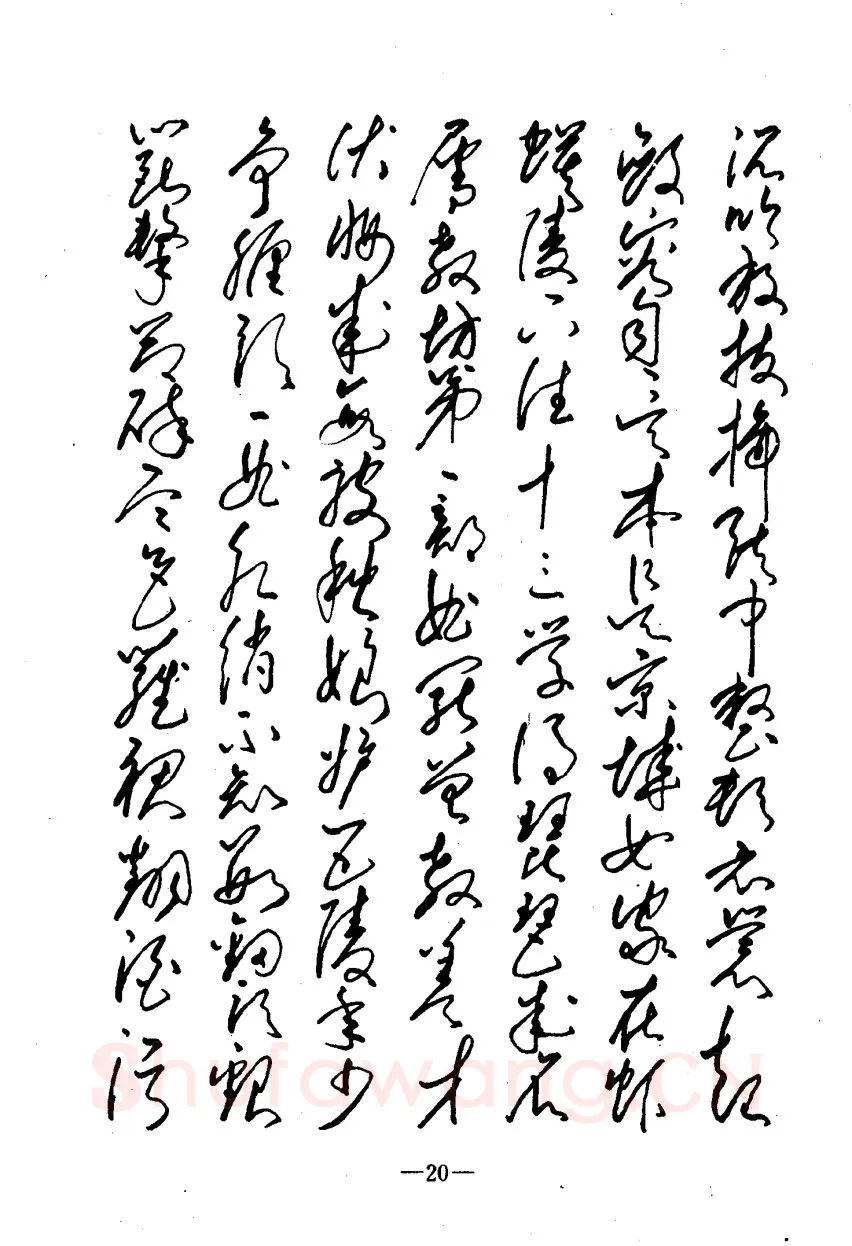 沉吟放拨插弦中整顿衣裳起
敛容自言本是京城女家在虾
蟆陵下住十三学得琵琶成名
属教坊第一部曲罢曾教善才
伏妆成每被秋娘妒五陵年少
争缠头一曲红绡不知数钿头银
篦擊节碎血色羅裙翻酒污
—20—
Shufawang.CN